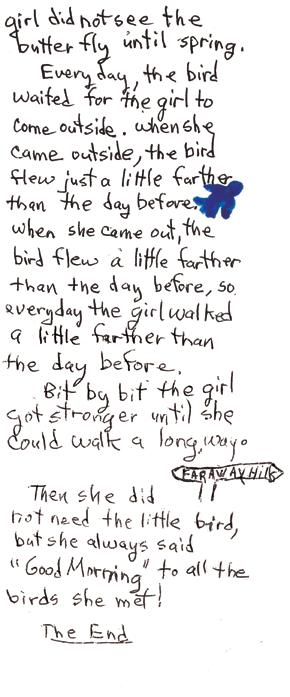 girl did not see the
butter fly until spring.
Every day, the bird
waited for the girl to
come outside. when she
came outside, the bird
flew just a little farther
than the day before.
when she came out, the
bird flew a little farther
than the day before, so
everyday the girl walked
a little farther than
the day before.
Bit by bit the girl
got stronger until she
could walk a long, way.
FARAWAY Hills
Then she did
not need the little bird,
but she always said
"Good Morning" to all the
birds she met!
The End